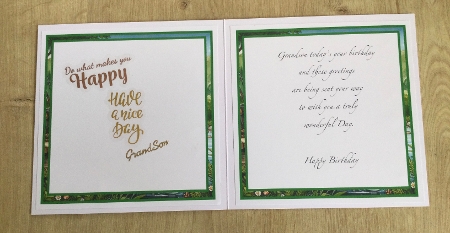 Do what makes you
Happy
Have
a nice
Day
GrandSon
Grandson today's your birthday
and these greetings
are being sent your way
to wish you a truly
wonderful Day.
Happy Birthday